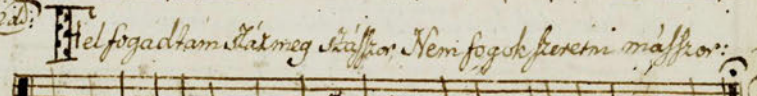 Felfogadtam Száz meg szászszor Nem fogok szeretni másszor: